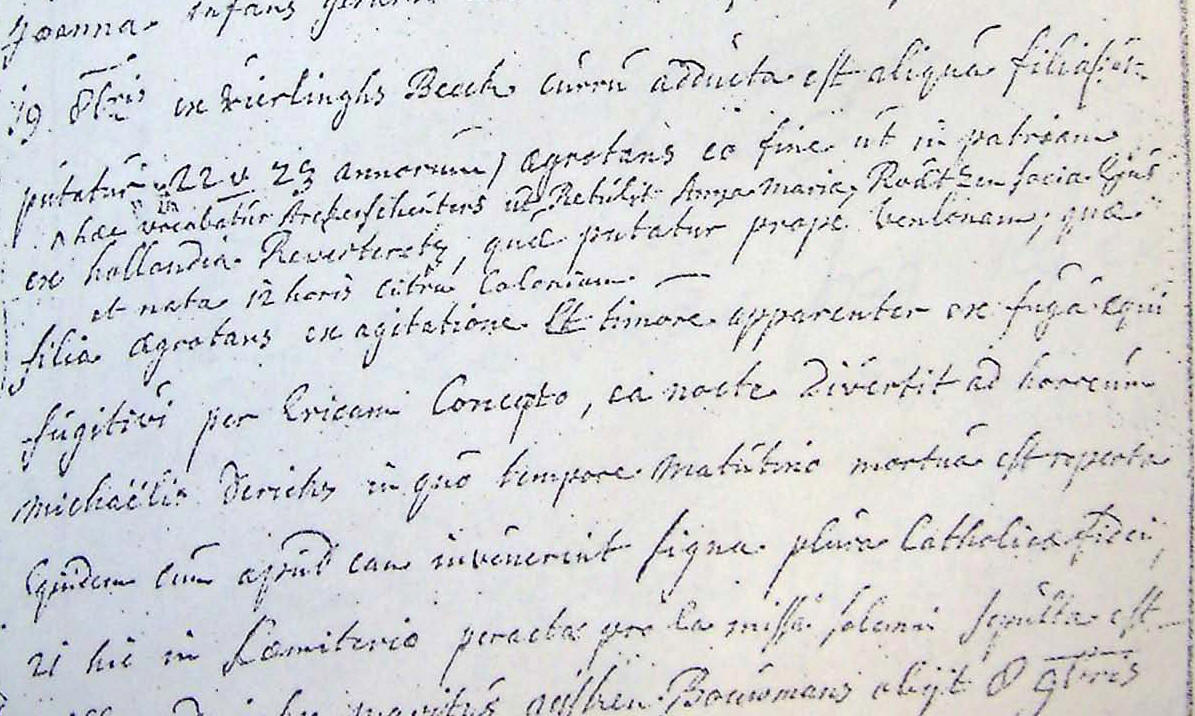 Joanna infans
19 8bris ex Vierlinghs Beeck curru adducta est aliqua filia (ut
putatur 22 v 23 annorum) ægrotans eo fine ut in patriam
^ hæc vocabatur Arckenscheuters ut Retulit Anna Maria Roûtzen socia Ejus
ex hollandia Reverteretr, quæ putatur prope Venlonam, quæ
et nata 12 horis citra Coloniam
filia ægrotans ex agitatione Et timore apparenter ex fuga equi
fugitivi per Ericam Concepto, ea nocte Divertit ad horreum
Michaëlis Derichs in quo tempore Matutino mortua est reperta
Equidem cum apud eam invenerint signa plura Catholicæ fidei,
21 hic in Cœmiterio peracta pro Ea missa solemni sepulta est
maritus Bouwmans obijt 8 9bris